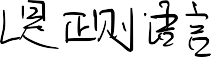 是正则语言